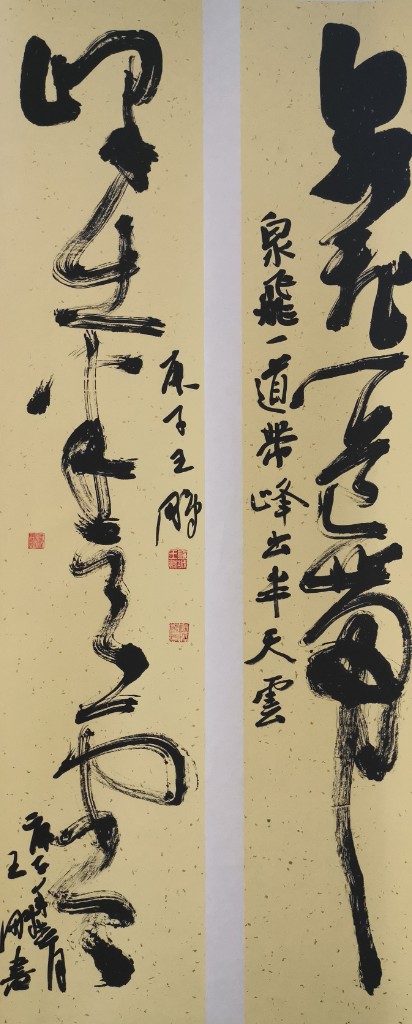 泉飛一道帶
泉飛一道帶峰出半天雲
峰出半天雲
庚子王鵬
庚子年月
王鵬書